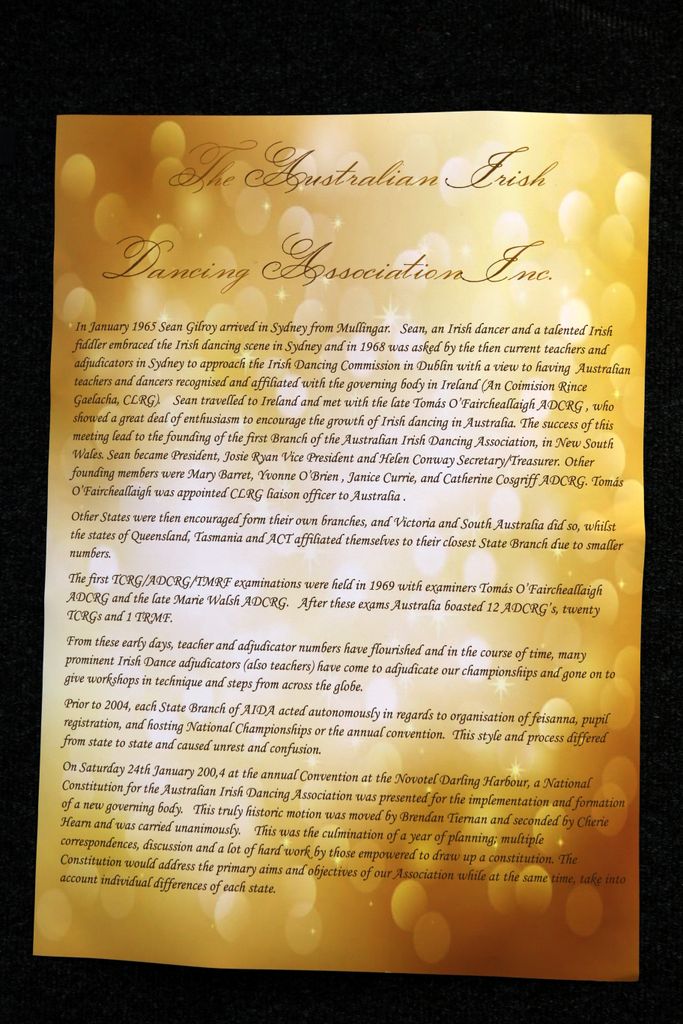 The Australian Irish
Dancing Association Inc.
In January 1965 Sean Gilroy arrived in Sydney from Mullingar. Sean, an Irish dancer and a talented Irish
fiddler embraced the Irish dancing scene in Sydney and in 1968 was asked by the then current teachers and
adjudicators in Sydney to approach the Irish Dancing Commission in Dublin with a view to having Australian
teachers and dancers recognised and affiliated with the governing body in Ireland (An Coimision Rince
Gaelacha, CLRG). Sean travelled to Ireland and met with the late Tomás O'Faircheallaigh ADCRG , who
showed a great deal of enthusiasm to encourage the growth of Irish dancing in Australia. The success of this
meeting lead to the founding of the first Branch of the Australian Irish Dancing Association, in New South
Wales. Sean became President, Josie Ryan Vice President and Helen Conway Secretary/Treasurer. Other
founding members were Mary Barret, Yvonne O'Brien , Janice Currie, and Catherine Cosgriff ADCRG. Tomás
O'Faircheallaigh was appointed CLRG liaison officer to Australia .
Other States were then encouraged form their own branches, and Victoria and South Australia did so, whilst
the states of Queensland, Tasmania and ACT affiliated themselves to their closest State Branch due to smaller
numbers.
The first TCRG/ADCRG/TMRF examinations were held in 1969 with examiners Tomás O'Faircheallaigh
ADCRG and the late Marie Walsh ADCRG. After these exams Australia boasted 12 ADCRG's, twenty
TCRGs and 1 TRMF.
From these early days, teacher and adjudicator numbers have flourished and in the course of time, many
prominent Irish Dance adjudicators (also teachers) have come to adjudicate our championships and gone on to
give workshops in technique and steps from across the globe.
Prior to 2004, each State Branch of AIDA acted autonomously in regards to organisation of feisanna, pupil
registration, and hosting National Championships or the annual convention. This style and process differed
from state to state and caused unrest and confusion.
On Saturday 24th January 200,4 at the annual Convention at the Novotel Darling Harbour, a National
Constitution for the Australian Irish Dancing Association was presented for the implementation and formation
of a new governing body. This truly historic motion was moved by Brendan Tiernan and seconded by Cherie
Hearn and was carried unanimously. This was the culmination of a year of planning; multiple
correspondences, discussion and a lot of hard work by those empowered to draw up a constitution. The
Constitution would address the primary aims and objectives of our Association while at the same time, take into
account individual differences of each state.